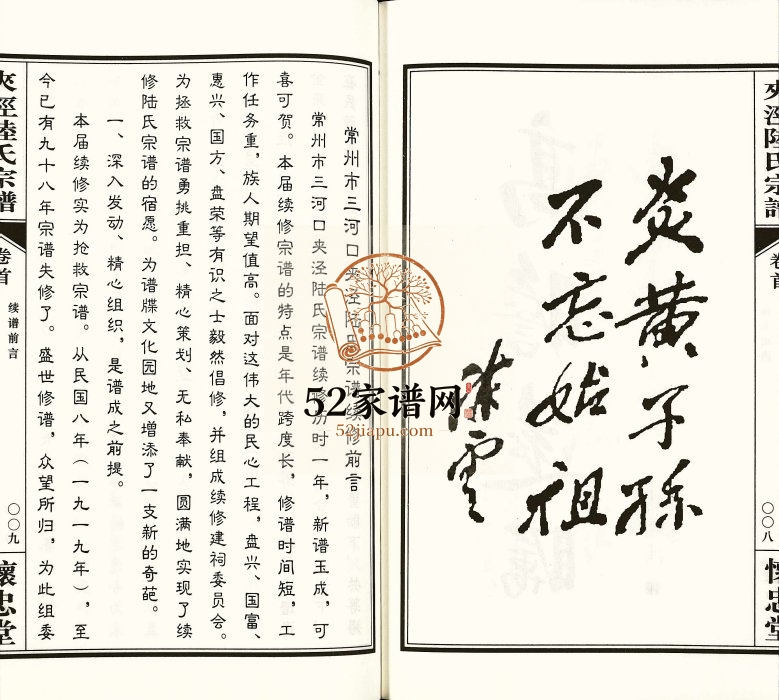 夾涇陸氏宗譜
卷首
〇〇八
懷忠堂
炎黄子孫
不忘始祖
陈雲
常州市三河口夹泾陆氏宗谱续修前言
常州市三河口夹泾陆氏宗谱续修历时一年，新谱玉成，可
喜可贺。本届续修宗谱的特点是年代跨度长，修谱时间短，工
作任务重，族人期望值高。面对这伟大的民心工程，盘兴、国富、
惠兴、国方、盘荣等有识之士毅然倡修，并组成续修建祠委员会。
为拯救宗谱勇挑重担、精心策划、无私奉献，圆满地实现了续
修陆氏宗谱的宿愿。为谱牒文化园地又增添了一支新的奇葩。
一、深入发动、精心组织，是谱成之前提。
本届续修实为抢救宗谱。从民国八年（一九一九年），至
今已有九十八年宗谱失修了。盛世修谱，众望所归，为此组委
夾涇陸氏宗譜
卷首
续谱前言
〇〇九
懷忠堂
52家谱网
52jiapu.com